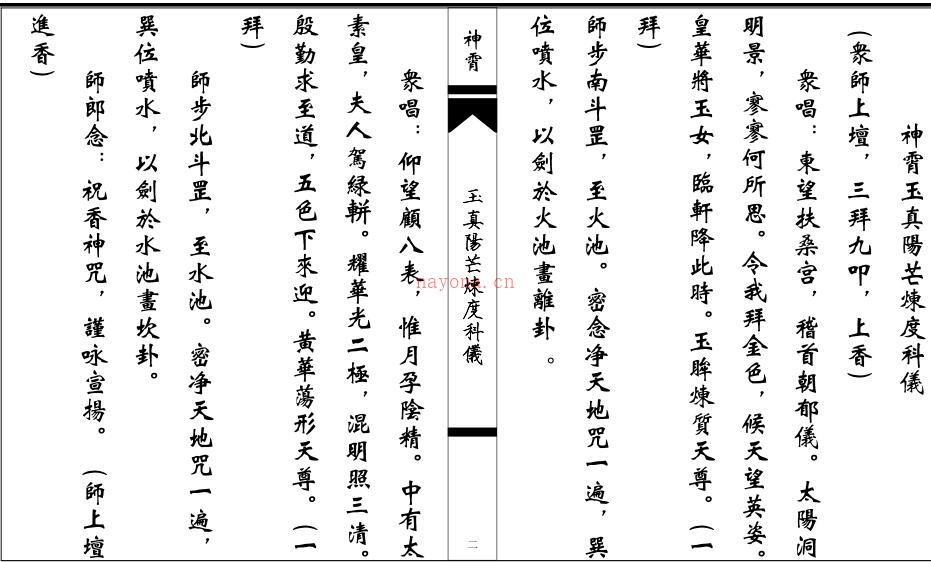 神霄玉真陽芒煉度科儀
（衆師上壇，三拜九叩，上香）
衆唱：東望扶桑宫，稽首朝郁儀。太陽洞
明景，寥寥何所思。令我拜金色，候天望英姿。
皇華將玉女，臨軒降此時。玉眸煉質天尊。（一
拜）
師步南斗罡，至火池。密念净天地咒一遍，巽
位噴水，以劍於火池畫離卦。
神霄
玉真陽芒煉度科儀
二
衆唱：仰望顧八表，惟月孕陰精。中有太
素皇，夫人駕緑軿。耀華光二極，混明照三清。
殷勤求至道，五色下來迎。黄華蕩形天尊。（一
拜）
師步北斗罡，至水池。密净天地咒一遍，
巽位噴水，以劍於水池畫坎卦。
師郎念：祝香神咒，謹咏宣揚。（師上壇
進香）
nayona.cn